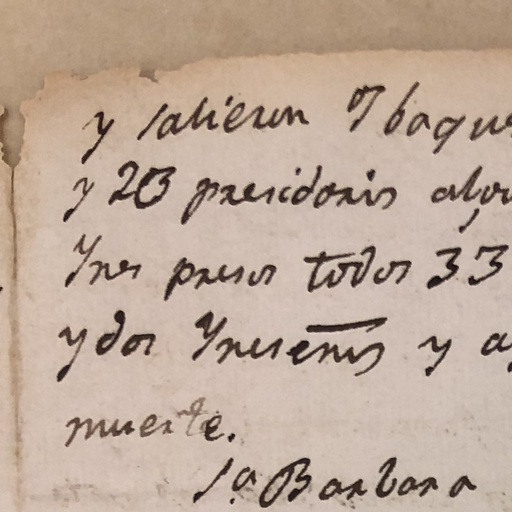 y salieron 7 baque
y 23 presidaris algu
tres presos todos 33
y dos tres y a
muerte.
Sa Barbara